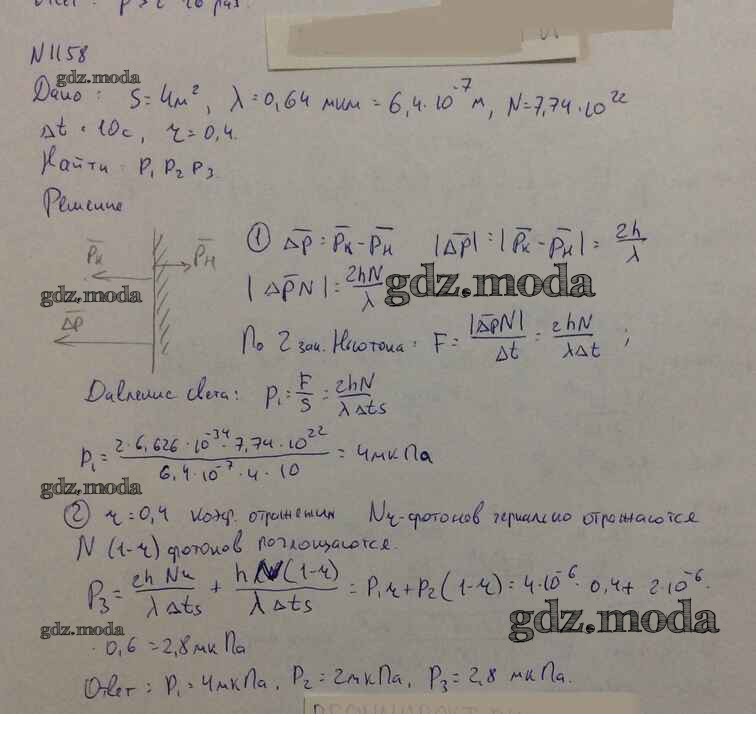 N 1158
gdz.moda
Дано: S = 4м², λ = 0,64 мкм = 6,4·10⁻⁷ м, N = 7,74·10²²
Δt = 10с, r = 0,4.
Найти: P₁ P₂ P₃
Решение
P̅ₖ P̅ₙ
Δp̅
① Δp̅ = P̅ₖ - P̅ₙ |Δp̅| = |P̅ₖ - P̅ₙ| = 2h/λ
|Δp̅N| = 2hN/λ
gdz.moda
gdz.moda
По 2 зак. Ньютона: F = |Δp̅N|/Δt = 2hN/λΔt ;
Давление света: P₁ = F/S = 2hN/λΔtS
P₁ = 2·6,626·10⁻³⁴·7,74·10²²/6,4·10⁻⁷·4·10 = 4мкПа
gdz.moda
② r = 0,4 коэф. отражения Nr-фотонов зеркально отражаются
N(1-r) фотонов поглощаются.
P₃ = 2hNr/λΔtS + hN(1-r)/λΔtS = P₁r + P₂(1-r) = 4·10⁻⁶·0,4 + 2·10⁻⁶·
gdz.moda
gdz.moda
·0,6 = 2,8мкПа
Ответ: P₁ = 4мкПа, P₂ = 2мкПа, P₃ = 2,8 мкПа.